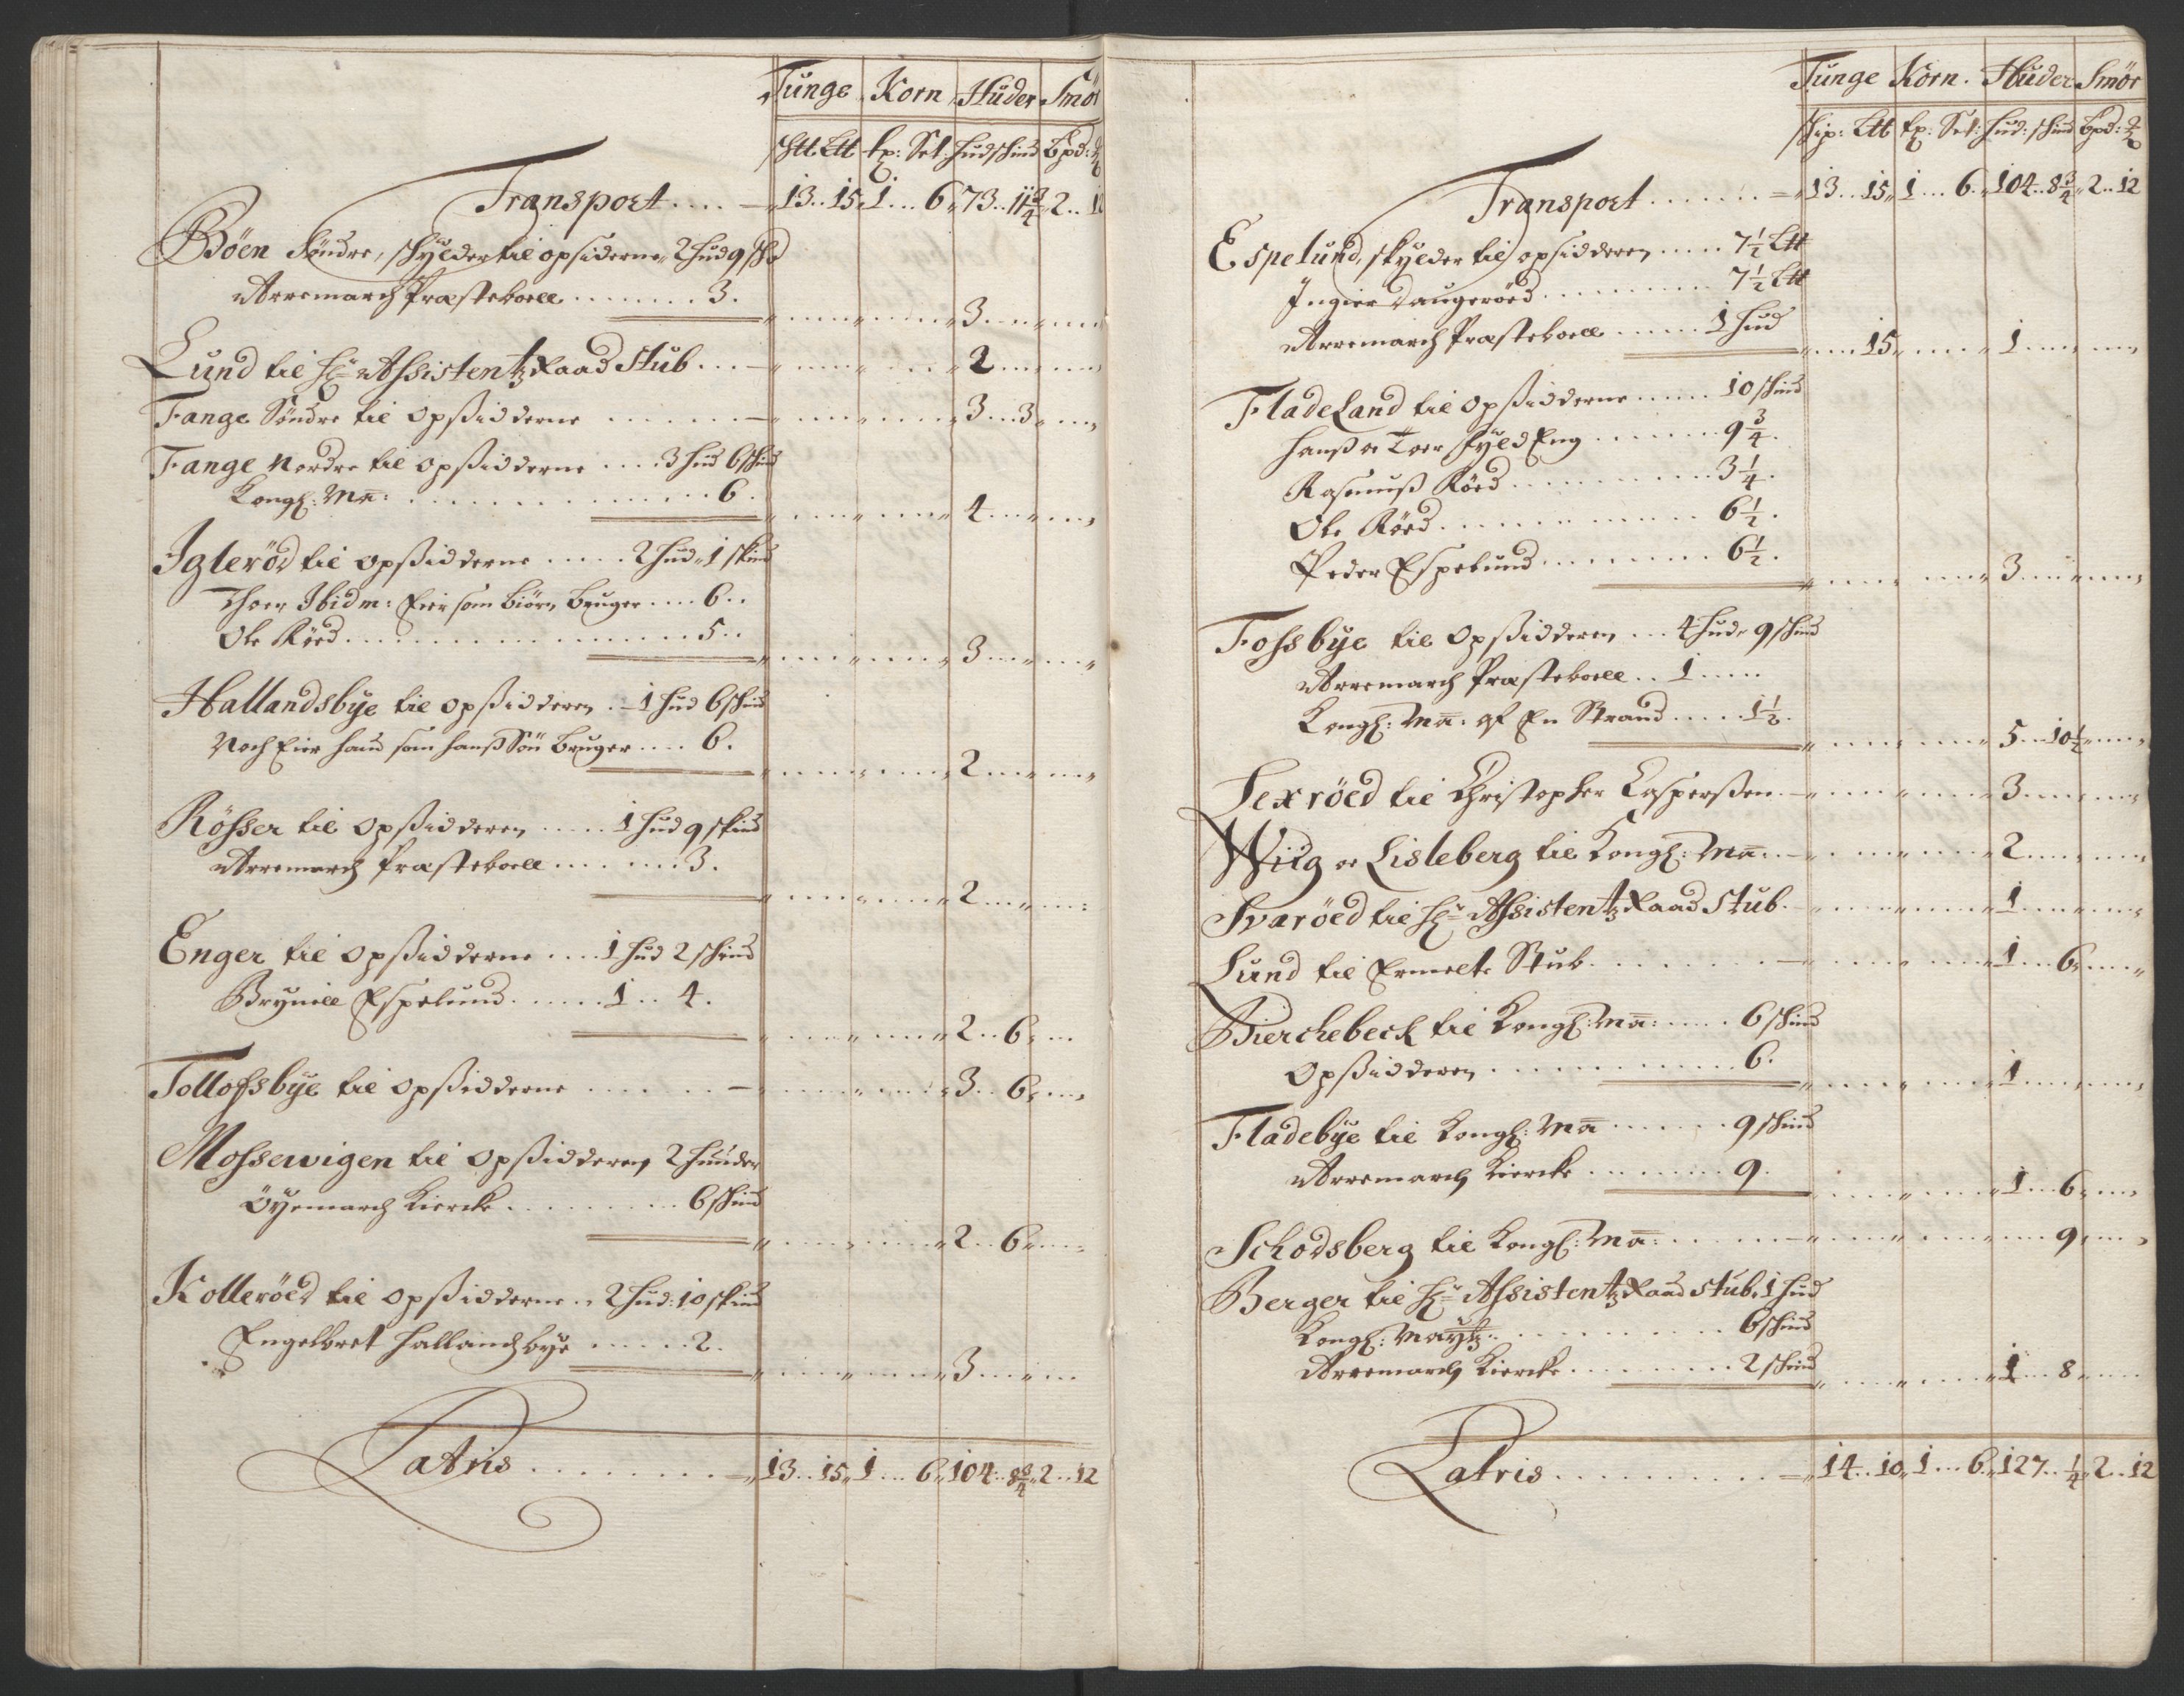 Tunge Korn Huder Smör
Stt Ltt tp: Set: hud skind bpd:
Transport .... 13 .. 15 1 ... 6 73 .. 11 3/4 2 ..
Böen Söndre, skylder til opsiderne 2 hud 9 sk
Arremarch Præsteboell ........ 3.
3
Lund til Hr Assistentz Raad Stub ... 2
Fange Söndre til Opsidderne ...... 3 .. 3
Fange Nordre til Opsidderne .... 3 hud 6 skind
Kongl: Ma: ............ 6.
4
Iglerød til Opsidderne ..... 2 hud 1 skind
Thoer Ibidm: Eier som Biörn bruger .... 6 ..
Ole Röed ................ 5 ..
3
Hallandsbye til Opsidderen .. 1 hud 6 skind
Noch Eier hand som hanss Sön bruger .... 6.
2
Rösser til Opsidderen ..... 1 hud 9 skind
Arremarch Præsteboell ....... 3.
2
Enger til Opsidderne .... 1 hud 2 skind
Bryniell Espelund ...... 1 .. 4.
2 .. 6
Tollofsbye til Opsidderne ...... 3 .. 6
Mossewigen til Opsidderen 2 huuder
Öyemarch Kiercke ........ 6 skind
2 .. 6
Kolleröed til Opsidderne .. 2 hud: 10 skind
Engelbret Hallandsbye ..... 2.
3
Latris ........ 13 .. 15 1 ... 6 104 .. 8 3/4 2 .. 12
Tunge Korn. Huder Smör
Skip: Ltt tp: Set: hud: skind bpd:
Transport ...... 13 .. 15 1 ... 6 104 .. 8 3/4 2 .. 12
Espelund, skylder til opsidderen ..... 7 1/2 Ltt
Ingier Daugeröed .......... 7 1/2 Ltt
Arremarch Præsteboell ..... 1 hud
15 1
Fladeland til Opsidderne ..... 10 skind
Hanss oc Toer Skyld Eng ....... 9 3/4.
Rasmuss Röed .......... 3 1/4.
Ole Röed ............ 6 1/2.
Peder Espelund ........ 6 1/2.
3
Fossbye til Opsidderen ... 4 hud 9 skind
Arremarch Præsteboell .. 1 .....
Kongl: Ma: af En Strand ..... 1 1/2.
5 .. 10 1/2
Lexröed til Christopher Caspersen ... 3
Wiig oc Lisleberg til Kongl: Ma: ... 2
Svaröed til Hr Assistentz Raad Stub. 1
Lund til Ermelt Stub ....... 1 .. 6
Bierchebeck til Kongl: Ma: ..... 6 skind
Opsidderen ............ 6.
1
Fladebye til Kongl: Ma ...... 9 skind
Arremarch Kiercke ........ 9.
1 .. 6
Schodsberg til Kongl: Ma: ..... 9
Berger til Hr Assistentz Raad Stub, 1 hud
Kongl: Maytz: ......... 6 skind
Arremarch Kiercke ........ 2 skind
1 .. 8
Latris ......... 14 .. 10 1 ... 6 127 .. 1/4 2 .. 12